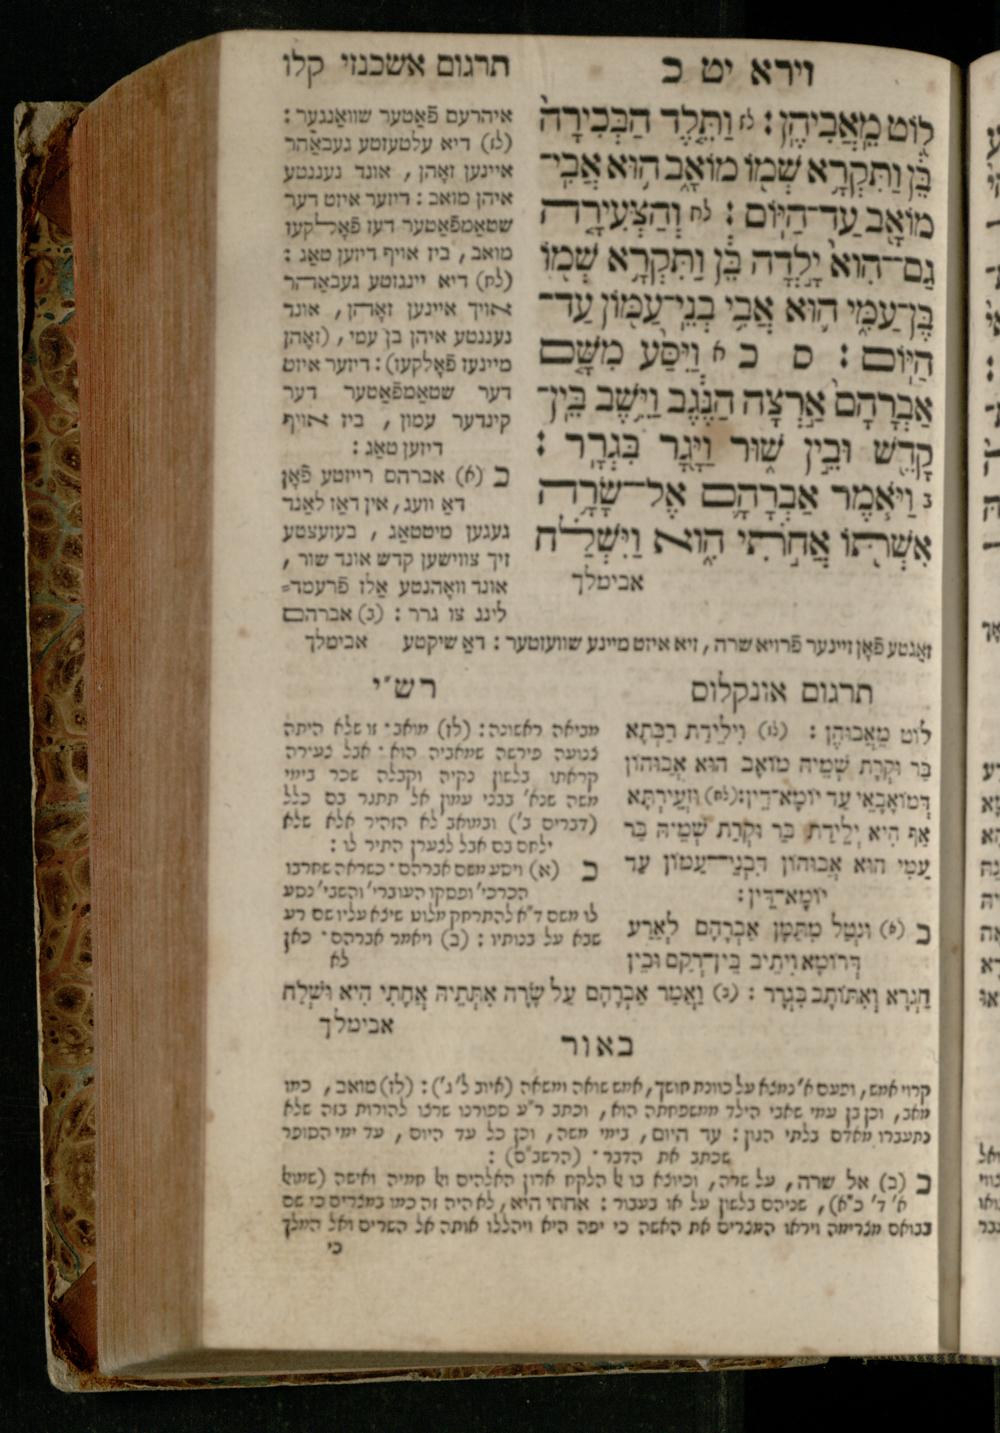 וירא יט כ
לוֹט מֵאֲבִיהֶן׃ לז וַתֵּלֶד הַבְּכִירָה
בֵּן וַתִּקְרָא שְׁמוֹ מוֹאָב הוּא אֲבִי־
מוֹאָב עַד־הַיּוֹם׃ לח וְהַצְּעִירָה
גַם־הִוא יָלְדָה בֵּן וַתִּקְרָא שְׁמוֹ
בֶּן־עַמִּי הוּא אֲבִי בְנֵי־עַמּוֹן עַד־
הַיּוֹם׃ ס כ א וַיִּסַּע מִשָּׁם
אַבְרָהָם אַרְצָה הַנֶּגֶב וַיֵּשֶׁב בֵּין־
קָדֵשׁ וּבֵין שׁוּר וַיָּגָר בִּגְרָר׃
ב וַיֹּאמֶר אַבְרָהָם אֶל־שָׂרָה
אִשְׁתּוֹ אֲחֹתִי הִוא וַיִּשְׁלַח
אבימלך
תרגום אשכנזי קלו
איהרעם פֿאַטער שוואַנגער׃
(לז) דיא עלטעזטע געבאַהר
איינען זאָהן, אונד נעננטע
איהן מואב׃ דיזער איזט דער
שטאַמפֿאַטער דעז פֿאָלקעז
מואב, ביז אויף דיזען טאַג׃
(לח) דיא יינגזטע געבאַהר
אויך איינען זאָהן, אונד
נעננטע איהן בן עמי, (זאָהן
מיינעז פֿאָלקעז)׃ דיזער איזט
דער שטאַמפֿאַטער דער
קינדער עמון, ביז אויף
דיזען טאַג׃
כ (א) אברהם רייזטע פֿאָן
דאַ וועג, אין דאַז לאַנד
געגען מיטטאַג, בעזעצטע
זיך צווישען קדש אונד שור,
אונד וואָהנטע אַלז פֿרעמד=
לינג צו גרר׃ (ב) אברהם
זאַגטע פֿאָן זיינער פֿרויא שרה, זיא איזט מיינע שוועזטער׃ דאַ שיקטע אבימלך
תרגום אונקלוס
לוט מֵאֲבוּהֶן׃ (לז) וִילֵידַת רַבְּתָא
בַּר וּקְרַת שְׁמֵיה מוֹאָב הוּא אֲבוּהוֹן
דְּמוֹאֲבָאֵי עַד יוֹמָא־דֵין׃ (לח) וּזְעֵירְתָּא
אַף הִיא יְלֵידַת בַּר וּקְרַת שְׁמֵיהּ בַּר
עַמִּי הוּא אֲבוּהוֹן דִּבְנֵי־עַמּוֹן עַד
יוֹמָא־דֵין׃
כ (א) וּנְטַל מִתַּמָּן אַבְרָהָם לְאַרַע
דְּרוֹמָא וִיתֵיב בֵּין־רְקַם וּבֵין
חַגְרָא וְאִתּוֹתַב בִּגְרָר׃ (ב) וַאֲמַר אַבְרָהָם עַל שָׂרָה אִתְּתֵיהּ אֲחָתִי הִיא וּשְׁלַח
אבימלך
רש״י
מביאה ראשונה׃ (לז) מואב· זו שלא היתה
צנועה פירשה שמאביה הוא· אבל צעירה
קראתו בלשון נקיה וקבלה שכר בימי
משה שנא׳ בבני עמון אל תתגר בם כלל
(דברים ב׳) ובמואב לא הזהיר אלא שלא
ילחם בם אבל לצערן התיר לו׃
כ (א) ויסע משם אברהם· כשראה שחרבו
הכרכי׳ ופסקו העוברי׳ והשבי׳ נסע
לו משם ד״א להתרחק מלוט שיצא עליו שם רע
שבא על בנותיו׃ (ב) ויאמר אברהם· כאן
לא
באור
קרוי אמש, ופעם א׳ נמצא על כוונת חושך, אמש שואה ומשאה (איוב ל׳ ג׳)׃ (לז) מואב, כמו
מאב, וכן בן עמי שאבי הילד ממשפחתה הוא, וכתב ר״ע ספורנו שרצו להורות בזה שלא
נתעברו מאדם בלתי הגון׃ עד היום, בימי משה, וכן כל עד היום, עד ימי הסופר
שכתב את הדבר· (הרשב״ם)׃
כ (ב) אל שרה, על שרה, וכיוצא בו אל הלקח ארון האלהים ואל חמיה ואישה (שמואל
א׳ ד׳ כ״א), שניהם בלשון על או בעבור׃ אחתי היא, לא היה זה כמו במצרים כי שם
בבואם מצרימה ויראו המצרים את האשה כי יפה היא ויהללו אותה אל השרים ואל המלך
כי